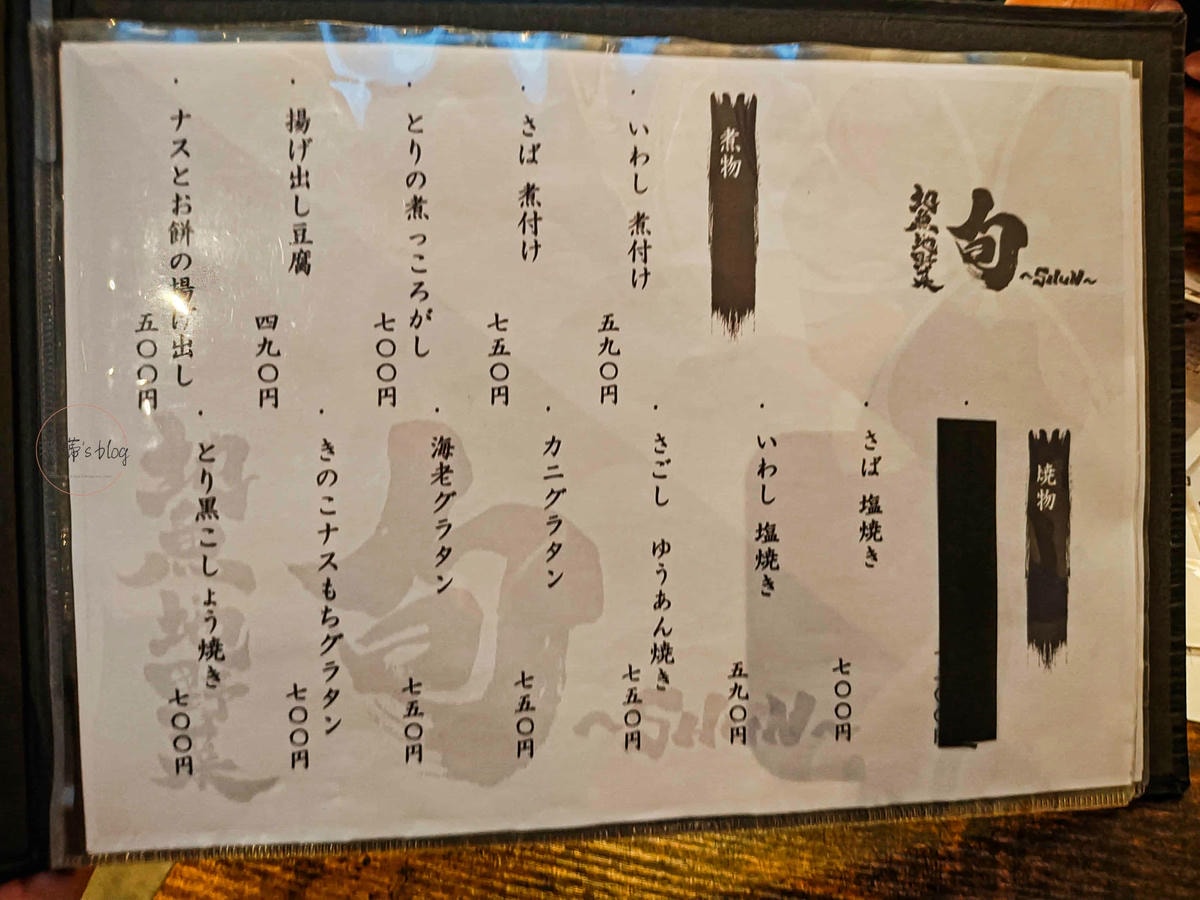 旬
~SHUN~
煮物
・いわし 煮付け
五九〇円
・さば 煮付け
七五〇円
・とりの煮っころがし
七〇〇円
・揚げ出し豆腐
四九〇円
・ナスとお餅の揚げ出し
五〇〇円
焼物
・さば 塩焼き
七〇〇円
・いわし 塩焼き
五九〇円
・さごし ゆうあん焼き
七五〇円
・カニグラタン
七五〇円
・海老グラタン
七五〇円
・きのこナスもちグラタン
七〇〇円
・とり黒こしょう焼き
七〇〇円
旬
~SHUN~
's blog